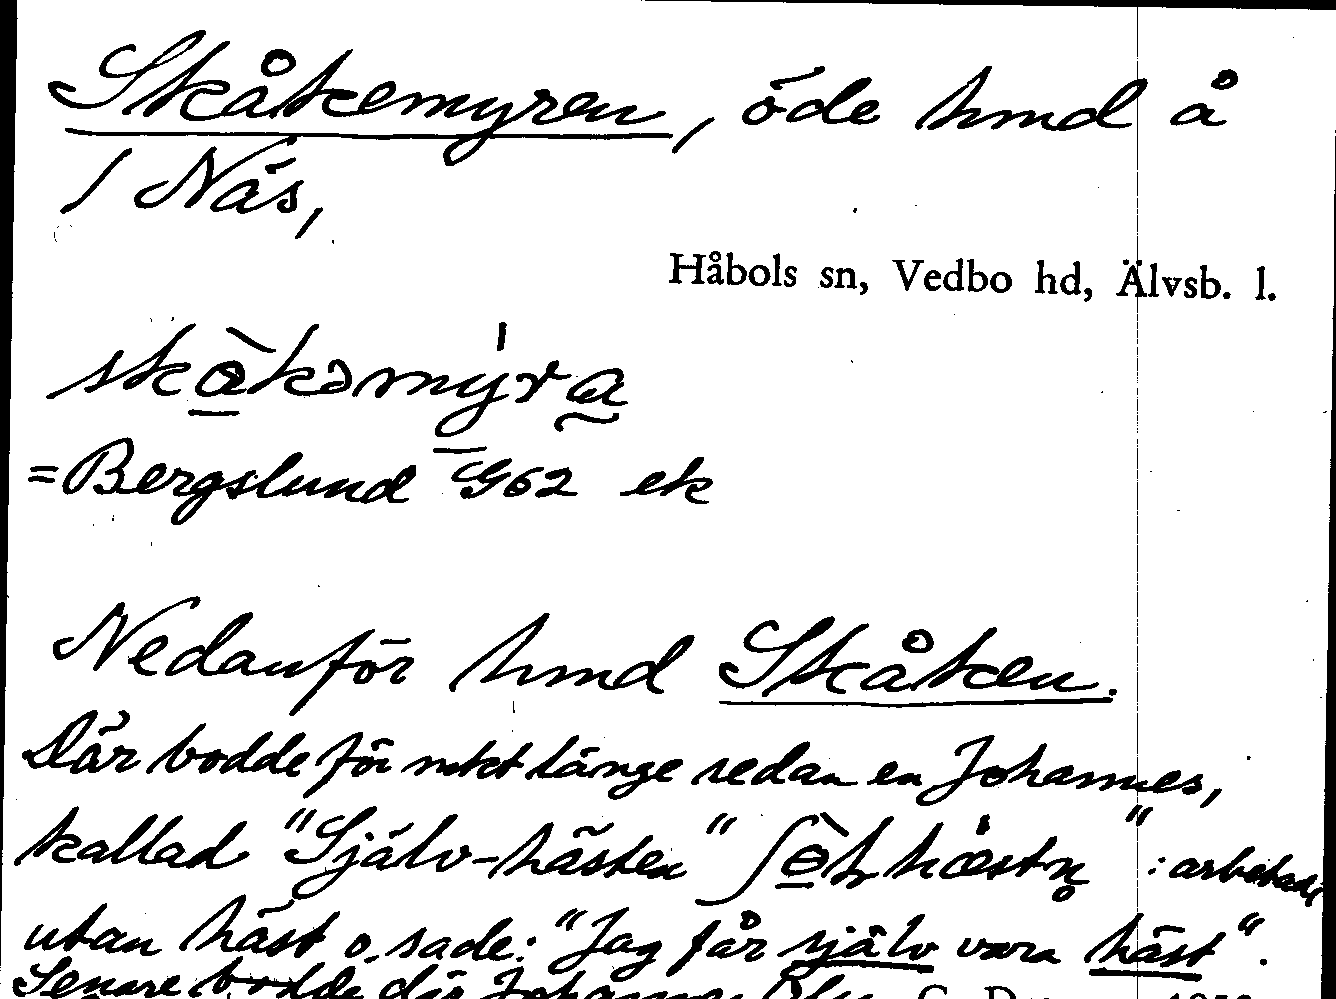 Skåkemyren, öde hmd å
1 Näs,
Håbols sn, Vedbo hd, Älvsb. l.
= Bergslund G62 ek
Nedanför hmd Skåken.
Där bodde för mkt länge sedan en Johannes,
kallad "Själv-hästen" : arbetade
utan häst o. sade: "Jag får själv vara häst".
Senare bodde där